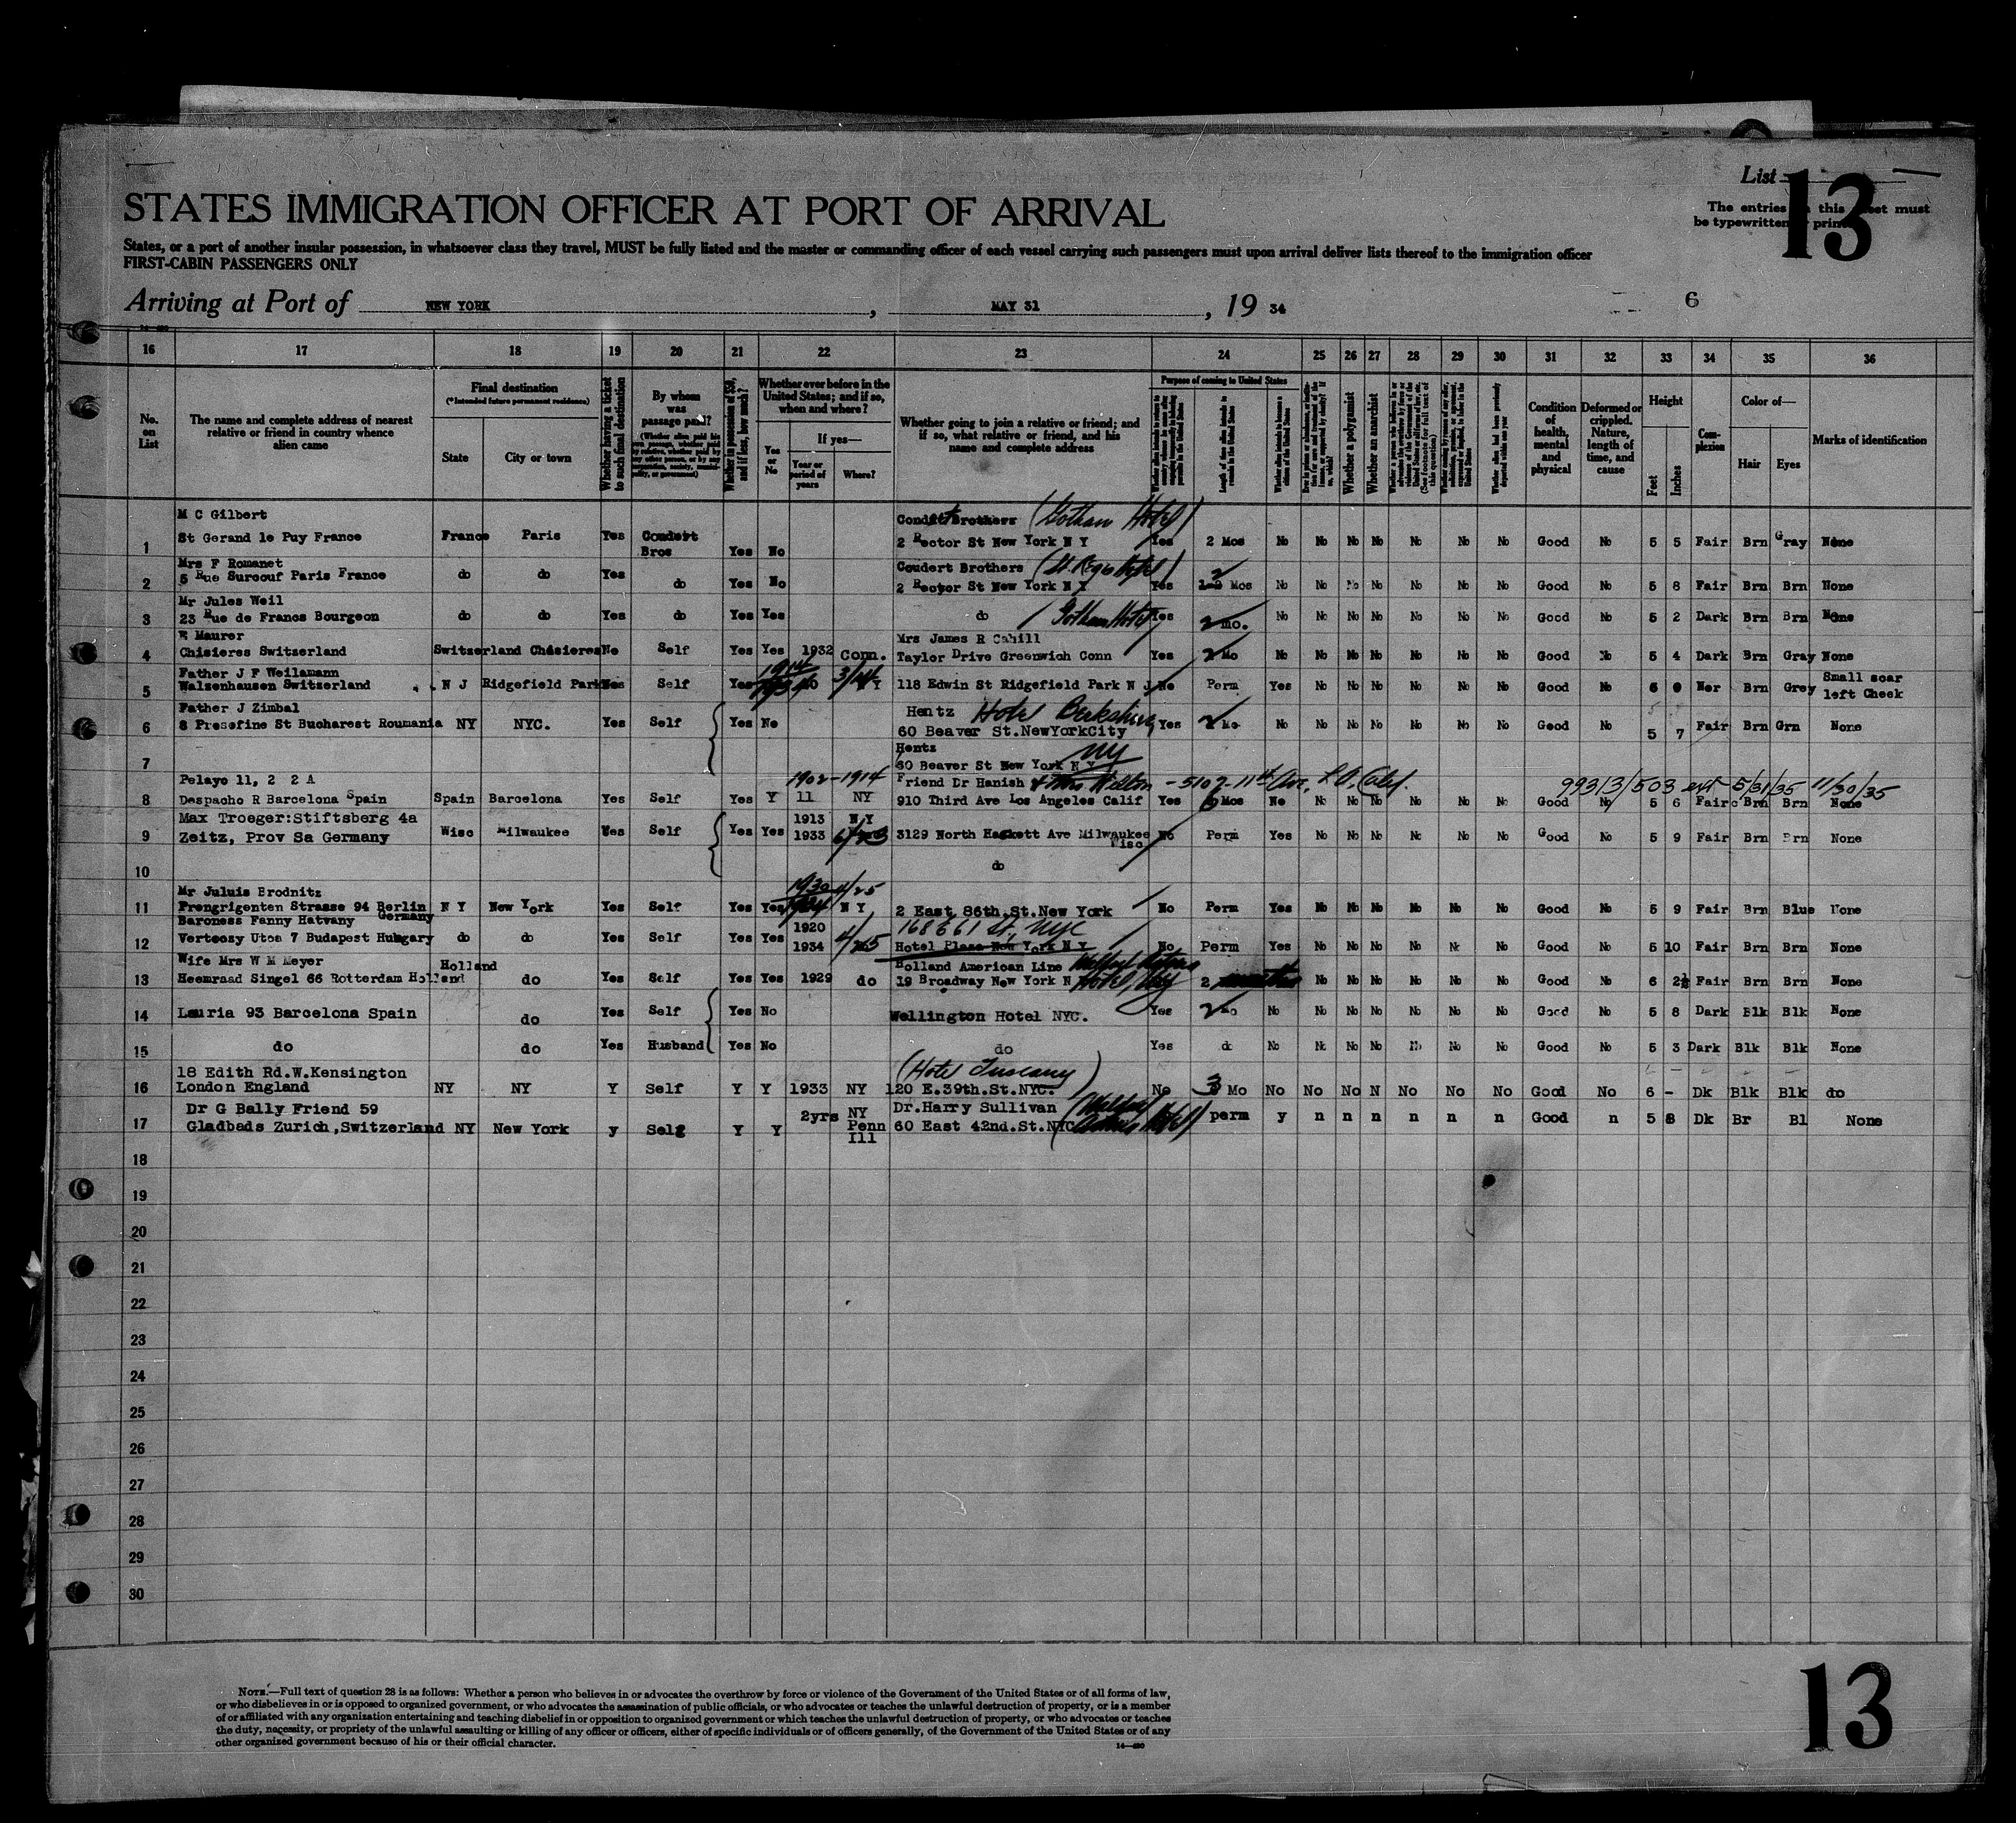 List
13
The entries on this sheet must
be typewritten or printed
STATES IMMIGRATION OFFICER AT PORT OF ARRIVAL
States, or a port of another insular possession, in whatsoever class they travel, MUST be fully listed and the master or commanding officer of each vessel carrying such passengers must upon arrival deliver lists thereof to the immigration officer
FIRST-CABIN PASSENGERS ONLY
Arriving at Port of NEW YORK, MAY 31, 19 34
6
16 17 18 19 20 21 22 23 24 25 26 27 28 29 30 31 32 33 34 35 36
No. on List
The name and complete address of nearest relative or friend in country whence alien came
Final destination
(*Intended future permanent residence)
State
City or town
Whether having a ticket to such final destination
By whom was passage paid?
(Whether alien paid his own passage, whether paid by relative, whether paid by any other person, or by any corporation, society, municipality, or government)
Whether in possession of $50, and if less, how much?
Whether ever before in the United States; and if so, when and where?
Yes or No
If yes—
Year or period of years
Where?
Whether going to join a relative or friend; and if so, what relative or friend, and his name and complete address
Purpose of coming to United States
Length of time alien intends to remain in the United States
Whether alien intends to become a citizen of the United States
Whether a polygamist
Whether an anarchist
Condition of health, mental and physical
Deformed or crippled. Nature, length of time, and cause
Height
Feet
Inches
Complexion
Color of—
Hair
Eyes
Marks of identification
M C Gilbert Condit Brothers (Gotham Hotel)
1 St Gerand le Puy France France Paris Yes Coudert Bros Yes No 2 Rector St New York N Y Yes 2 Mos No No No No No No No Good No 5 5 Fair Brn Gray None
Mrs F Romanet Coudert Brothers (St. Regis Hotel)
2 5 Rue Surcouf Paris France do do Yes do Yes No 2 Rector St New York N Y Yes 2 Mos No No No No No No No Good No 5 8 Fair Brn Brn None
Mr Jules Weil
3 23 Rue de Francs Bourgeon do do Yes do Yes Yes do (Gotham Hotel) Yes 2 mo. No No No No No No No Good No 5 2 Dark Brn Brn None
R Maurer Mrs James R Cahill
4 Chisieres Switzerland Switzerland Chesieres No Self Yes Yes 1932 Conn. Taylor Drive Greenwich Conn Yes 2 Mo No No No No No No No Good No 5 4 Dark Brn Gray None
Father J F Weilamann 1914 Small scar
5 Walzenhausen Switzerland N J Ridgefield Park Yes Self Yes 118 Edwin St Ridgefield Park N J No Perm Yes No No No No No No Good No Ner Brn Grey left Cheek
Father J Zimbal Hentz Hotel Berkshire
6 8 Presefine St Bucharest Roumania NY NYC. Yes Self Yes No 60 Beaver St.NewYorkCity Yes 2 Mo No No No No No No No Good No 5 7 Fair Brn Grn None
Hentz NY
7 60 Beaver St New York N Y
Pelayo 11, 2 2 A 1902-1914 Friend Dr Hanish & Mrs Wilton - 5107-11th Ave, L.A. Calif. 99313/503 ext 5/31/35 11/30/35
8 Despacho R Barcelona Spain Spain Barcelona Yes Self Yes Y 11 NY 910 Third Ave Los Angeles Calif Yes 6 Mos No No No No No No No No Good No 5 6 Fair Brn Brn None
Max Troeger:Stiftsberg 4a 1913 N Y
9 Zeitz, Prov Sa Germany Wisc Milwaukee Yes Self Yes Yes 1933 3129 North Hackett Ave Milwaukee Wisc No Perm Yes No No No No No No Good No 5 9 Fair Brn Brn None
10 do
Mr Juluis Brodnitz 1930 4/25
11 Prengrigenten Strasse 94 Berlin Germany N Y New York Yes Self Yes Yes N Y 2 East 86th.St.New York No Perm Yes No No No No No No Good No 5 9 Fair Brn Blue None
Baroness Fanny Hatvany 1920 168 E 61 St. NYC
12 Vertcozy Utca 7 Budapest Hungary do do Yes Self Yes Yes 1934 Hotel Plaza New York N Y No Perm Yes No No No No No No Good No 5 10 Fair Brn Brn None
Wife Mrs W M Meyer Holland Holland American Line Waldorf Astoria
13 Heemraad Singel 66 Rotterdam Holland do Yes Self Yes Yes 1929 do 19 Broadway New York N Y Hotel 2 No No No No No No Good No 6 2½ Fair Brn Brn None
14 Lauria 93 Barcelona Spain do Yes Self Yes No Wellington Hotel NYC. Yes 2 mo No No No No No No No Good No 5 8 Dark Blk Blk None
15 do do Yes Husband Yes No do Yes do No No No No No No No Good No 5 3 Dark Blk Blk None
18 Edith Rd.W.Kensington (Hotel Tuscany)
16 London England NY NY Y Self Y Y 1933 NY 120 E.39th.St.NYC. No 3 Mo No No No N No No No Good No 6 - Dk Blk Blk do
Dr G Bally Friend 59 2yrs NY Dr.Harry Sullivan (Waldorf
17 Gladbads Zurich,Switzerland NY New York y Selg Y Y Penn 60 East 42nd.St.NYC Astoria Hotel) perm y n n n n n n Good n 5 8 Dk Br Bl None
Ill
18
19
20
21
22
23
24
25
26
27
28
29
30
NOTE.—Full text of question 28 is as follows: Whether a person who believes in or advocates the overthrow by force or violence of the Government of the United States or of all forms of law,
or who disbelieves in or is opposed to organized government, or who advocates the assassination of public officials, or who advocates or teaches the unlawful destruction of property, or is a member
of or affiliated with any organization entertaining and teaching disbelief in or opposition to organized government or which teaches the unlawful destruction of property, or who advocates or teaches
the duty, necessity, or propriety of the unlawful assaulting or killing of any officer or officers, either of specific individuals or of officers generally, of the Government of the United States or of any
other organized government because of his or their official character.
14—480
13